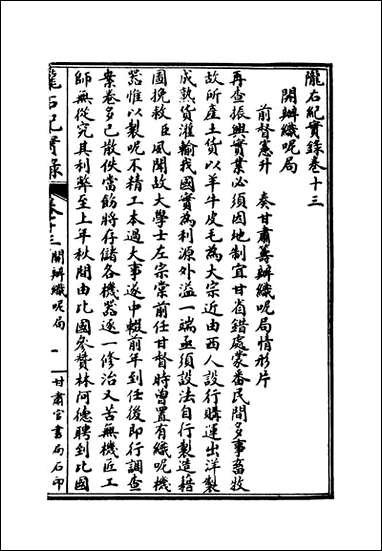 隴右紀實錄卷十三
開辦織呢局
前督憲升 奏甘肅籌辦織呢局情形片
再查振興實業必須因地制宜甘省錯處蒙番民間多事畜牧
故所產土貨以羊牛皮毛為大宗近由西人設行購運出洋製
成熟貨灌輸我國實為利源外溢一端亟須設法自行製造藉
圖挽救臣風聞故大學士左宗棠前任甘督時曾置有織呢機
器惟以製呢不精工本過大事遂中輟前年到任後即行調查
案卷多已散佚當飭將存儲各機器逐一修治又苦無機匠工
師無從究其利弊至上年秋間由比國參贊林阿德聘到比國
隴右紀實錄
卷十三 開辦織呢局
一
甘肅官書局石印